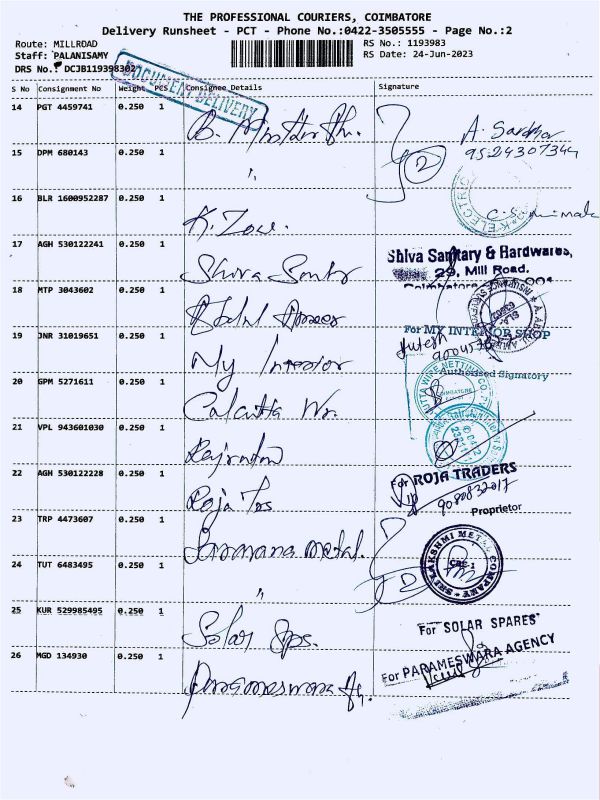 THE PROFESSIONAL COURIERS, COIMBATORE
Delivery Runsheet - PCT - Phone No.:0422-3505555 - Page No.:2
Route: MILLROAD RS No.: 1193983
Staff: PALANISAMY RS Date: 24-Jun-2023
DRS No.: DCJB119398302
DOCUMENT DELIVERY
S No Consignment No Weight PCS Consignee Details Signature
14 PGT 4459741 0.250 1
A. Sardhar
9524307344
15 DPM 680143 0.250 1 "
2
16 BLR 1600952287 0.250 1 K.
ELECTRIC
17 AGH 530122241 0.250 1 Shiva
Shiva Sanitary & Hardwares,
29, Mill Road.
18 MTP 3043602 0.250 1 Abdul
19 JNR 31019651 0.250 1 My Interior
For MY INTERIOR SHOP
Authorised Signatory
20 GPM 5271611 0.250 1 Calcutta Wr.
WIRE NETTING CO.
21 VPL 943601030 0.250 1
22 AGH 530122228 0.250 1 Roja Trs
For ROJA TRADERS
Proprietor
23 TRP 4473607 0.250 1 metal.
SRI LAKSHMI METAL COMPANY
CBE-1
24 TUT 6483495 0.250 1 "
25 KUR 529985495 0.250 1 Solar Sps.
For SOLAR SPARES
26 MGD 134930 0.250 1 Parameswara Ag.
For PARAMESWARA AGENCY